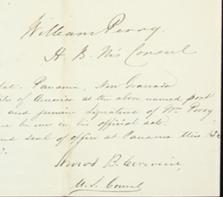 William Perry
H. B. M's Consul
Panama, New Granada
of America at the above named port
and genuine signature of Wm Perry
his official act.
and seal of office at Panama this
Amos B. Corwine
U.S. Consul